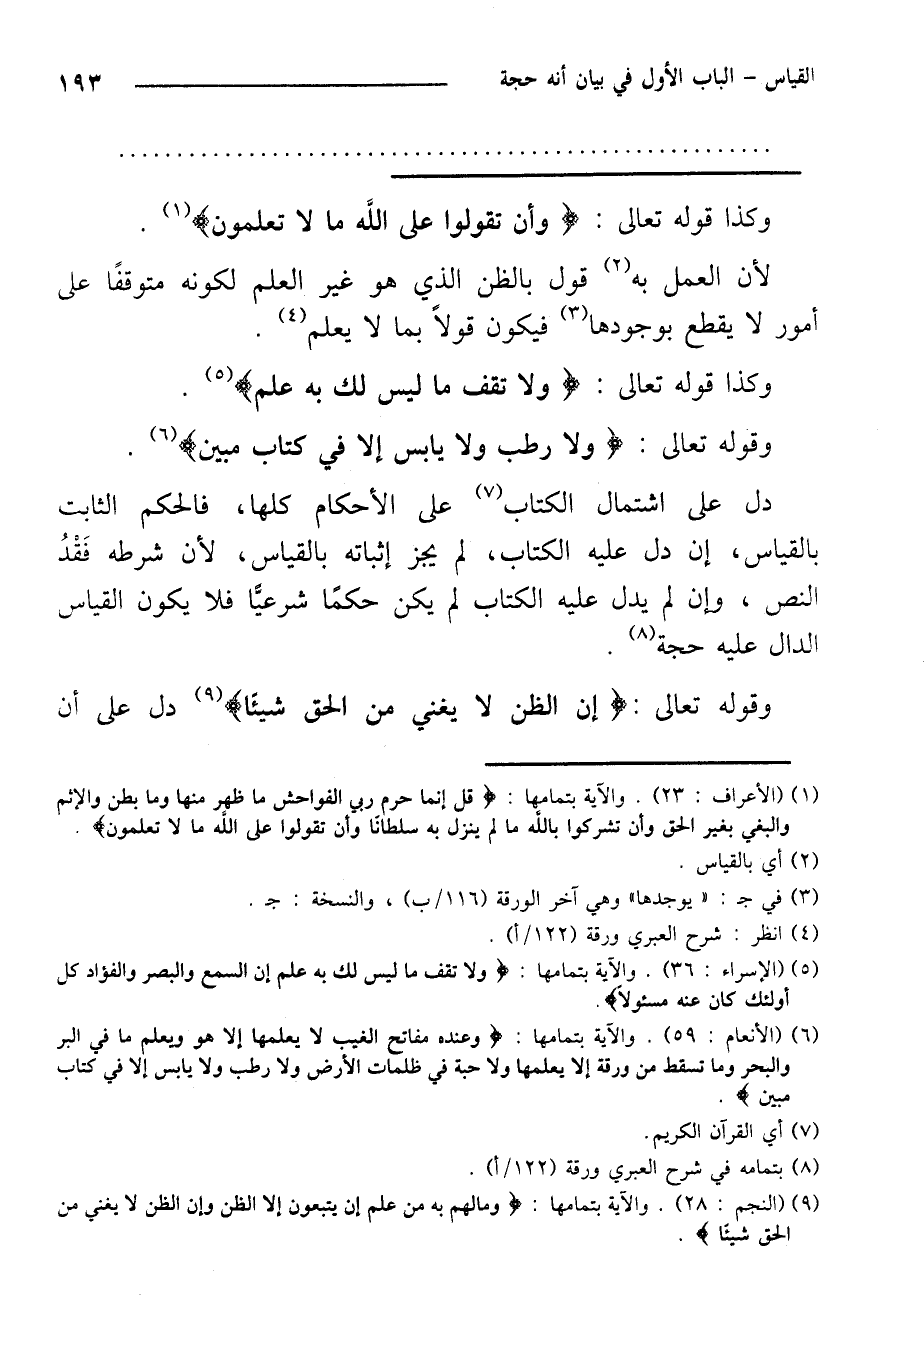 القياس – الباب الأول في بيان أنه حجة ١٩٣
وكذا قوله تعالى : ﴿ وأن تقولوا على اللَّه ما لا تعلمون﴾(١) .
لأن العمل به(٢) قول بالظن الذي هو غير العلم لكونه متوقفًا على
أمور لا يقطع بوجودها(٣) فيكون قولاً بما لا يعلم(٤) .
وكذا قوله تعالى : ﴿ ولا تقف ما ليس لك به علم﴾(٥) .
وقوله تعالى : ﴿ ولا رطب ولا يابس إلا في كتاب مبين﴾(٦) .
دل على اشتمال الكتاب(٧) على الأحكام كلها، فالحكم الثابت
بالقياس، إن دل عليه الكتاب، لم يجز إثباته بالقياس، لأن شرطه فَقْدُ
النص ، وإن لم يدل عليه الكتاب لم يكن حكمًا شرعيًّا فلا يكون القياس
الدال عليه حجة(٨) .
وقوله تعالى :﴿ إن الظن لا يغني من الحق شيئًا﴾(٩) دل على أن
(١) (الأعراف : ٢٣) . والآية بتمامها : ﴿ قل إنما حرم ربي الفواحش ما ظهر منها وما بطن والإثم
والبغي بغير الحق وأن تشركوا باللَّه ما لم ينزل به سلطانًا وأن تقولوا على اللَّه ما لا تعلمون﴾ .
(٢) أي بالقياس .
(٣) في جـ : « يوجدها» وهي آخر الورقة (١١٦/ب) ، والنسخة : جـ .
(٤) انظر : شرح العبري ورقة (١٢٢/أ) .
(٥) (الإسراء : ٣٦) . والآية بتمامها : ﴿ ولا تقف ما ليس لك به علم إن السمع والبصر والفؤاد كل
أولئك كان عنه مسئولاً﴾.
(٦) (الأنعام : ٥٩) . والآية بتمامها : ﴿ وعنده مفاتح الغيب لا يعلمها إلا هو ويعلم ما في البر
والبحر وما تسقط من ورقة إلا يعلمها ولا حبة في ظلمات الأرض ولا رطب ولا يابس إلا في كتاب
مبين ﴾ .
(٧) أي القرآن الكريم.
(٨) بتمامه في شرح العبري ورقة (١٢٢/أ) .
(٩) (النجم : ٢٨) . والآية بتمامها : ﴿ ومالهم به من علم إن يتبعون إلا الظن وإن الظن لا يغني من
الحق شيئًا ﴾ .